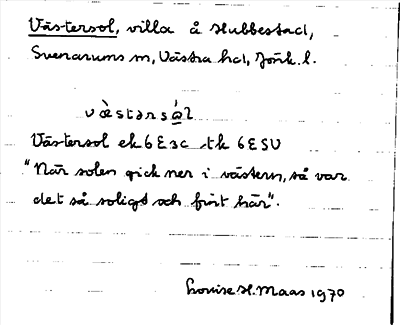 Västersol, villa å Hubbestad,
Svenarums sn, Västra hd, Jönk. l.
v ä̀ s t ə r s ά l
Västersol ek 6E3c tk 6ESV
"När solen gick ner i västern, så var
det så soligt och fint här".
Louise H. Maas 1970